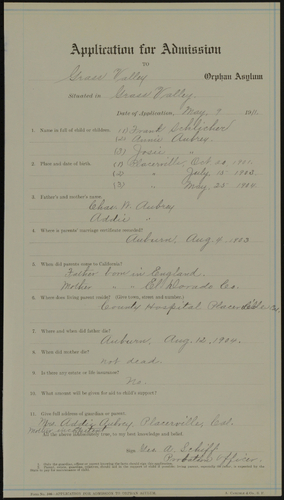 Application for Admission
TO
Grass Valley Orphan Asylum
Situated in Grass Valley
Date of Application, May 9 191
1. Name in full of child or children. (1) Frank
(2) Annie Aubrey
(3) Josie "
2. Place and date of birth. (1) Placerville, Oct 20, 1901.
(2) " July 15 1903.
(3) " May, 25 1904.
3. Father's and mother's name
Chas. W. Aubrey
Addie "
4. Where is parents' marriage certificate recorded?
Auburn, Aug. 4 1903
5. When did parents come to California?
Father born in England.
Mother " " El Dorado Co.
6. Where does living parent reside? (Give town, street and number.)
County Hospital, Placerville
7. Where and when did father die?
Auburn, Aug. 12, 1904.
8. When did mother die?
not dead.
9. Is there any estate or life insurance?
No.
10. What amount will be given for aid to child's support?
11. Give full address of guardian or parent.
Mrs. Addie Aubrey, Placerville, Cal.
All the above information true, to my best knowledge and belief.
Sign
Probation Officer